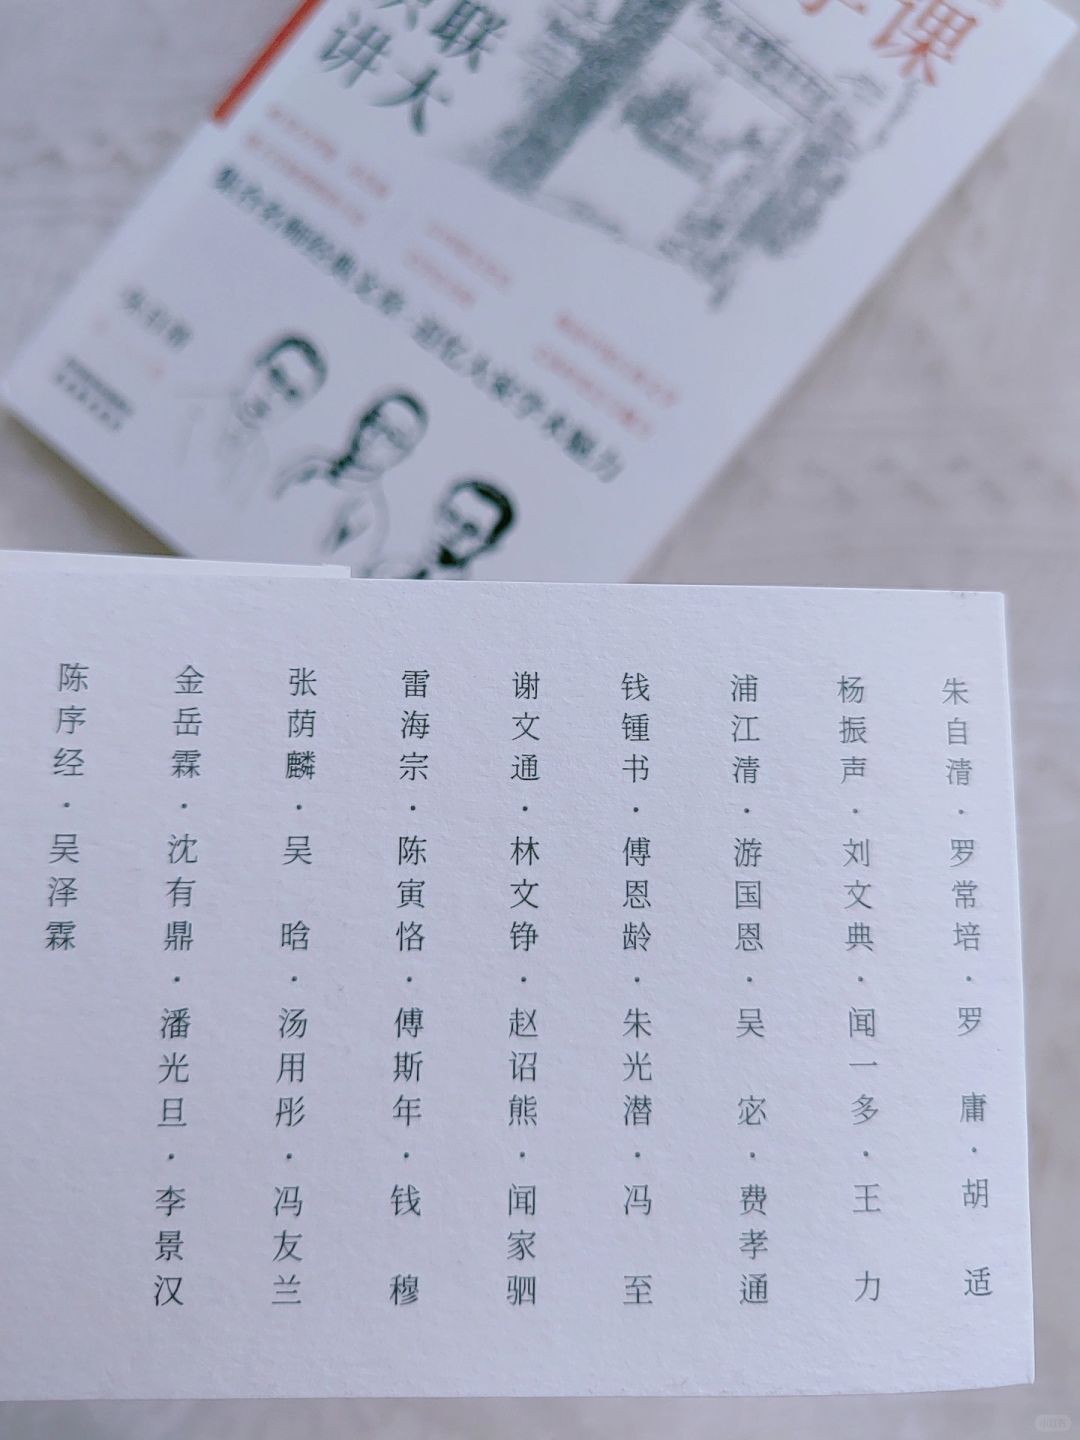 课
联
讲大
朱自清·罗常培·罗 庸·胡 适
杨振声·刘文典·闻一多·王 力
浦江清·游国恩·吴 宓·费孝通
钱锺书·傅恩龄·朱光潜·冯 至
谢文通·林文铮·赵诏熊·闻家驷
雷海宗·陈寅恪·傅斯年·钱 穆
张荫麟·吴 晗·汤用彤·冯友兰
金岳霖·沈有鼎·潘光旦·李景汉
陈序经·吴泽霖
小红书